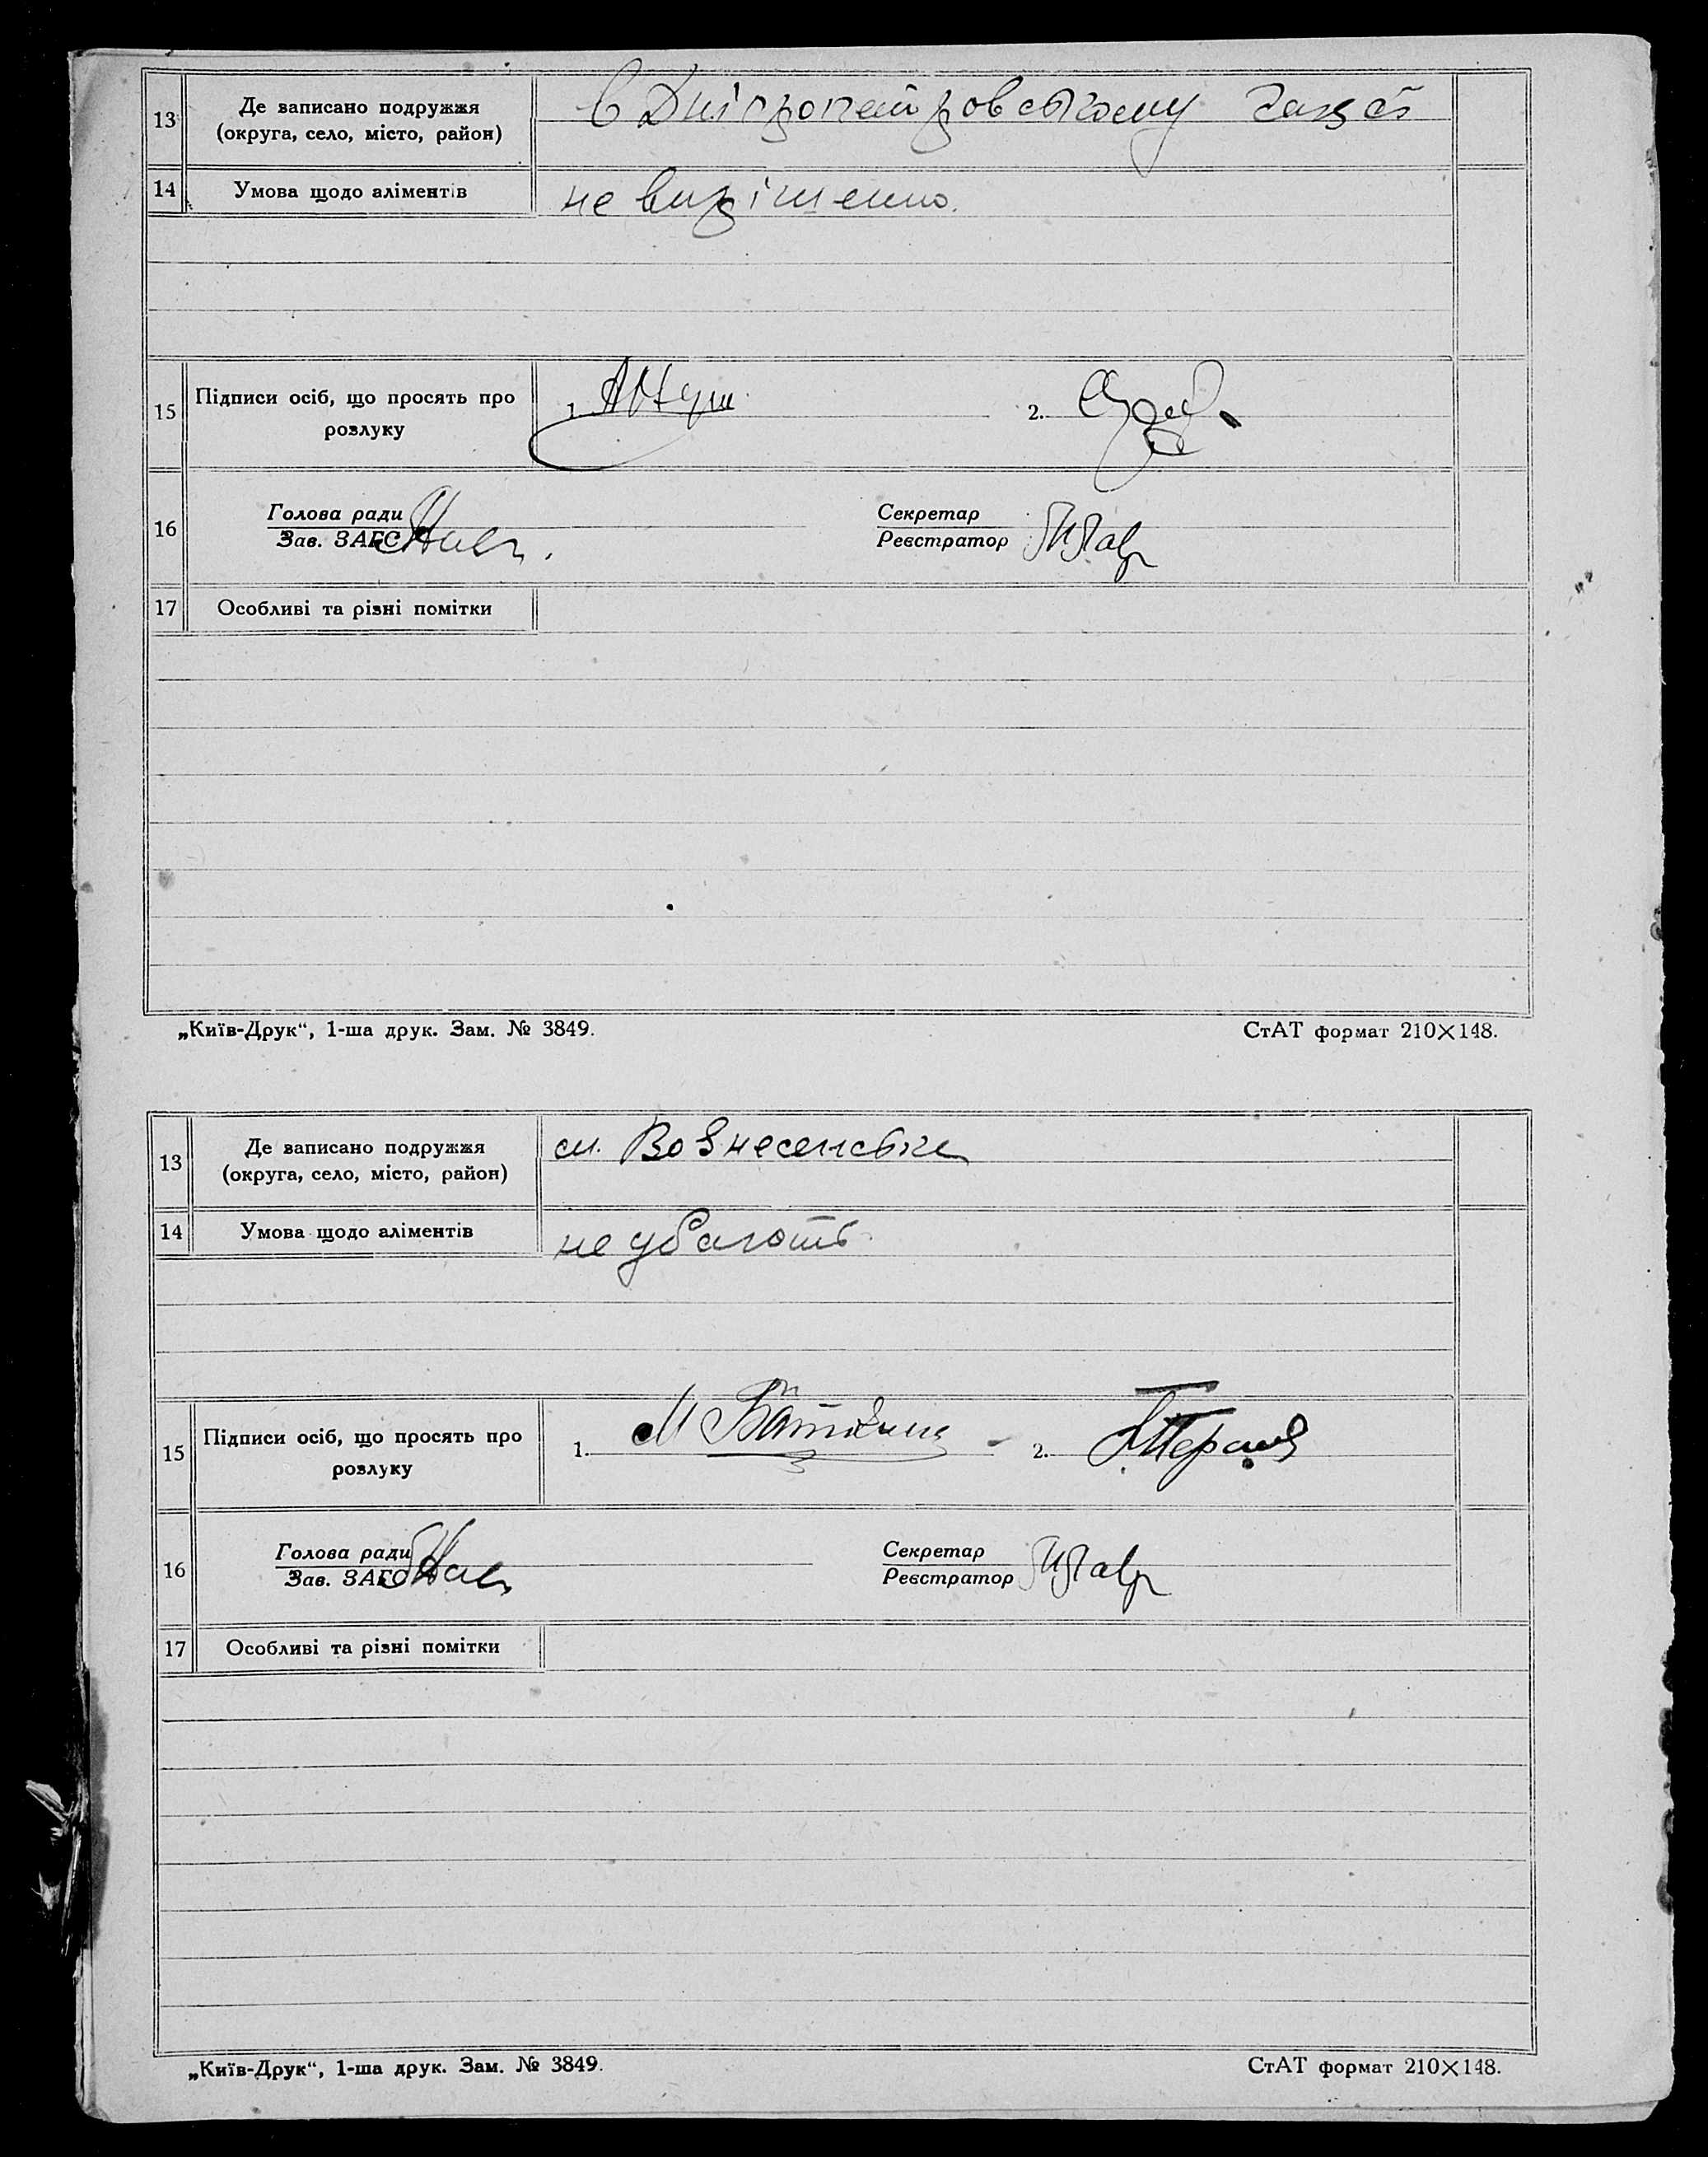 13
Де записано подружжя
(округа, село, місто, район)
в Дніпропетровському загсі
14
Умова щодо аліментів
не вирішенно.
15
Підписи осіб, що просять про
розлуку
1.
2.
16
Голова ради
Зав. ЗАГС
Секретар
Реєстратор
17
Особливі та різні помітки
„Київ-Друк“, 1-ша друк. Зам. № 3849.
СтАТ формат 210×148.
13
Де записано подружжя
(округа, село, місто, район)
м. Вознесенське
14
Умова щодо аліментів
не
15
Підписи осіб, що просять про
розлуку
1.
2.
16
Голова ради
Зав. ЗАГС
Секретар
Реєстратор
17
Особливі та різні помітки
„Київ-Друк“, 1-ша друк. Зам. № 3849.
СтАТ формат 210×148.